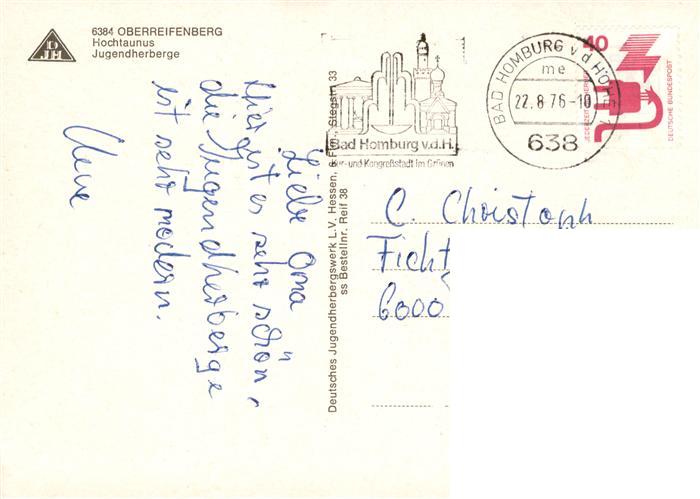 6384 OBERREIFENBERG
Hochtaunus
Jugendherberge
DJH
Liebe Oma
Hier ist es sehr schön,
die Jugendherberge
ist sehr modern.
Deutsches Jugendherbergswerk L.V. Hessen, 33
ss Bestellnr. Reif 38
Bad Homburg v.d.H.
und Kongreßstadt im Grünen
BAD HOMBURG v d HÖHE 1
me
22.8.76-10
638
40
JEDERZEIT SICHERHEIT
DEUTSCHE BUNDESPOST
C. Christoph
Ficht
6000